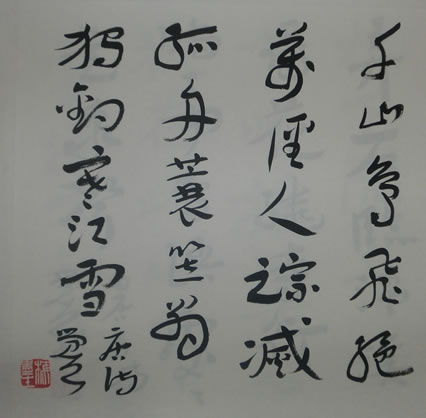 千山鳥飛絕
萬徑人踪滅
孤舟蓑笠翁
獨釣寒江雪
唐詩